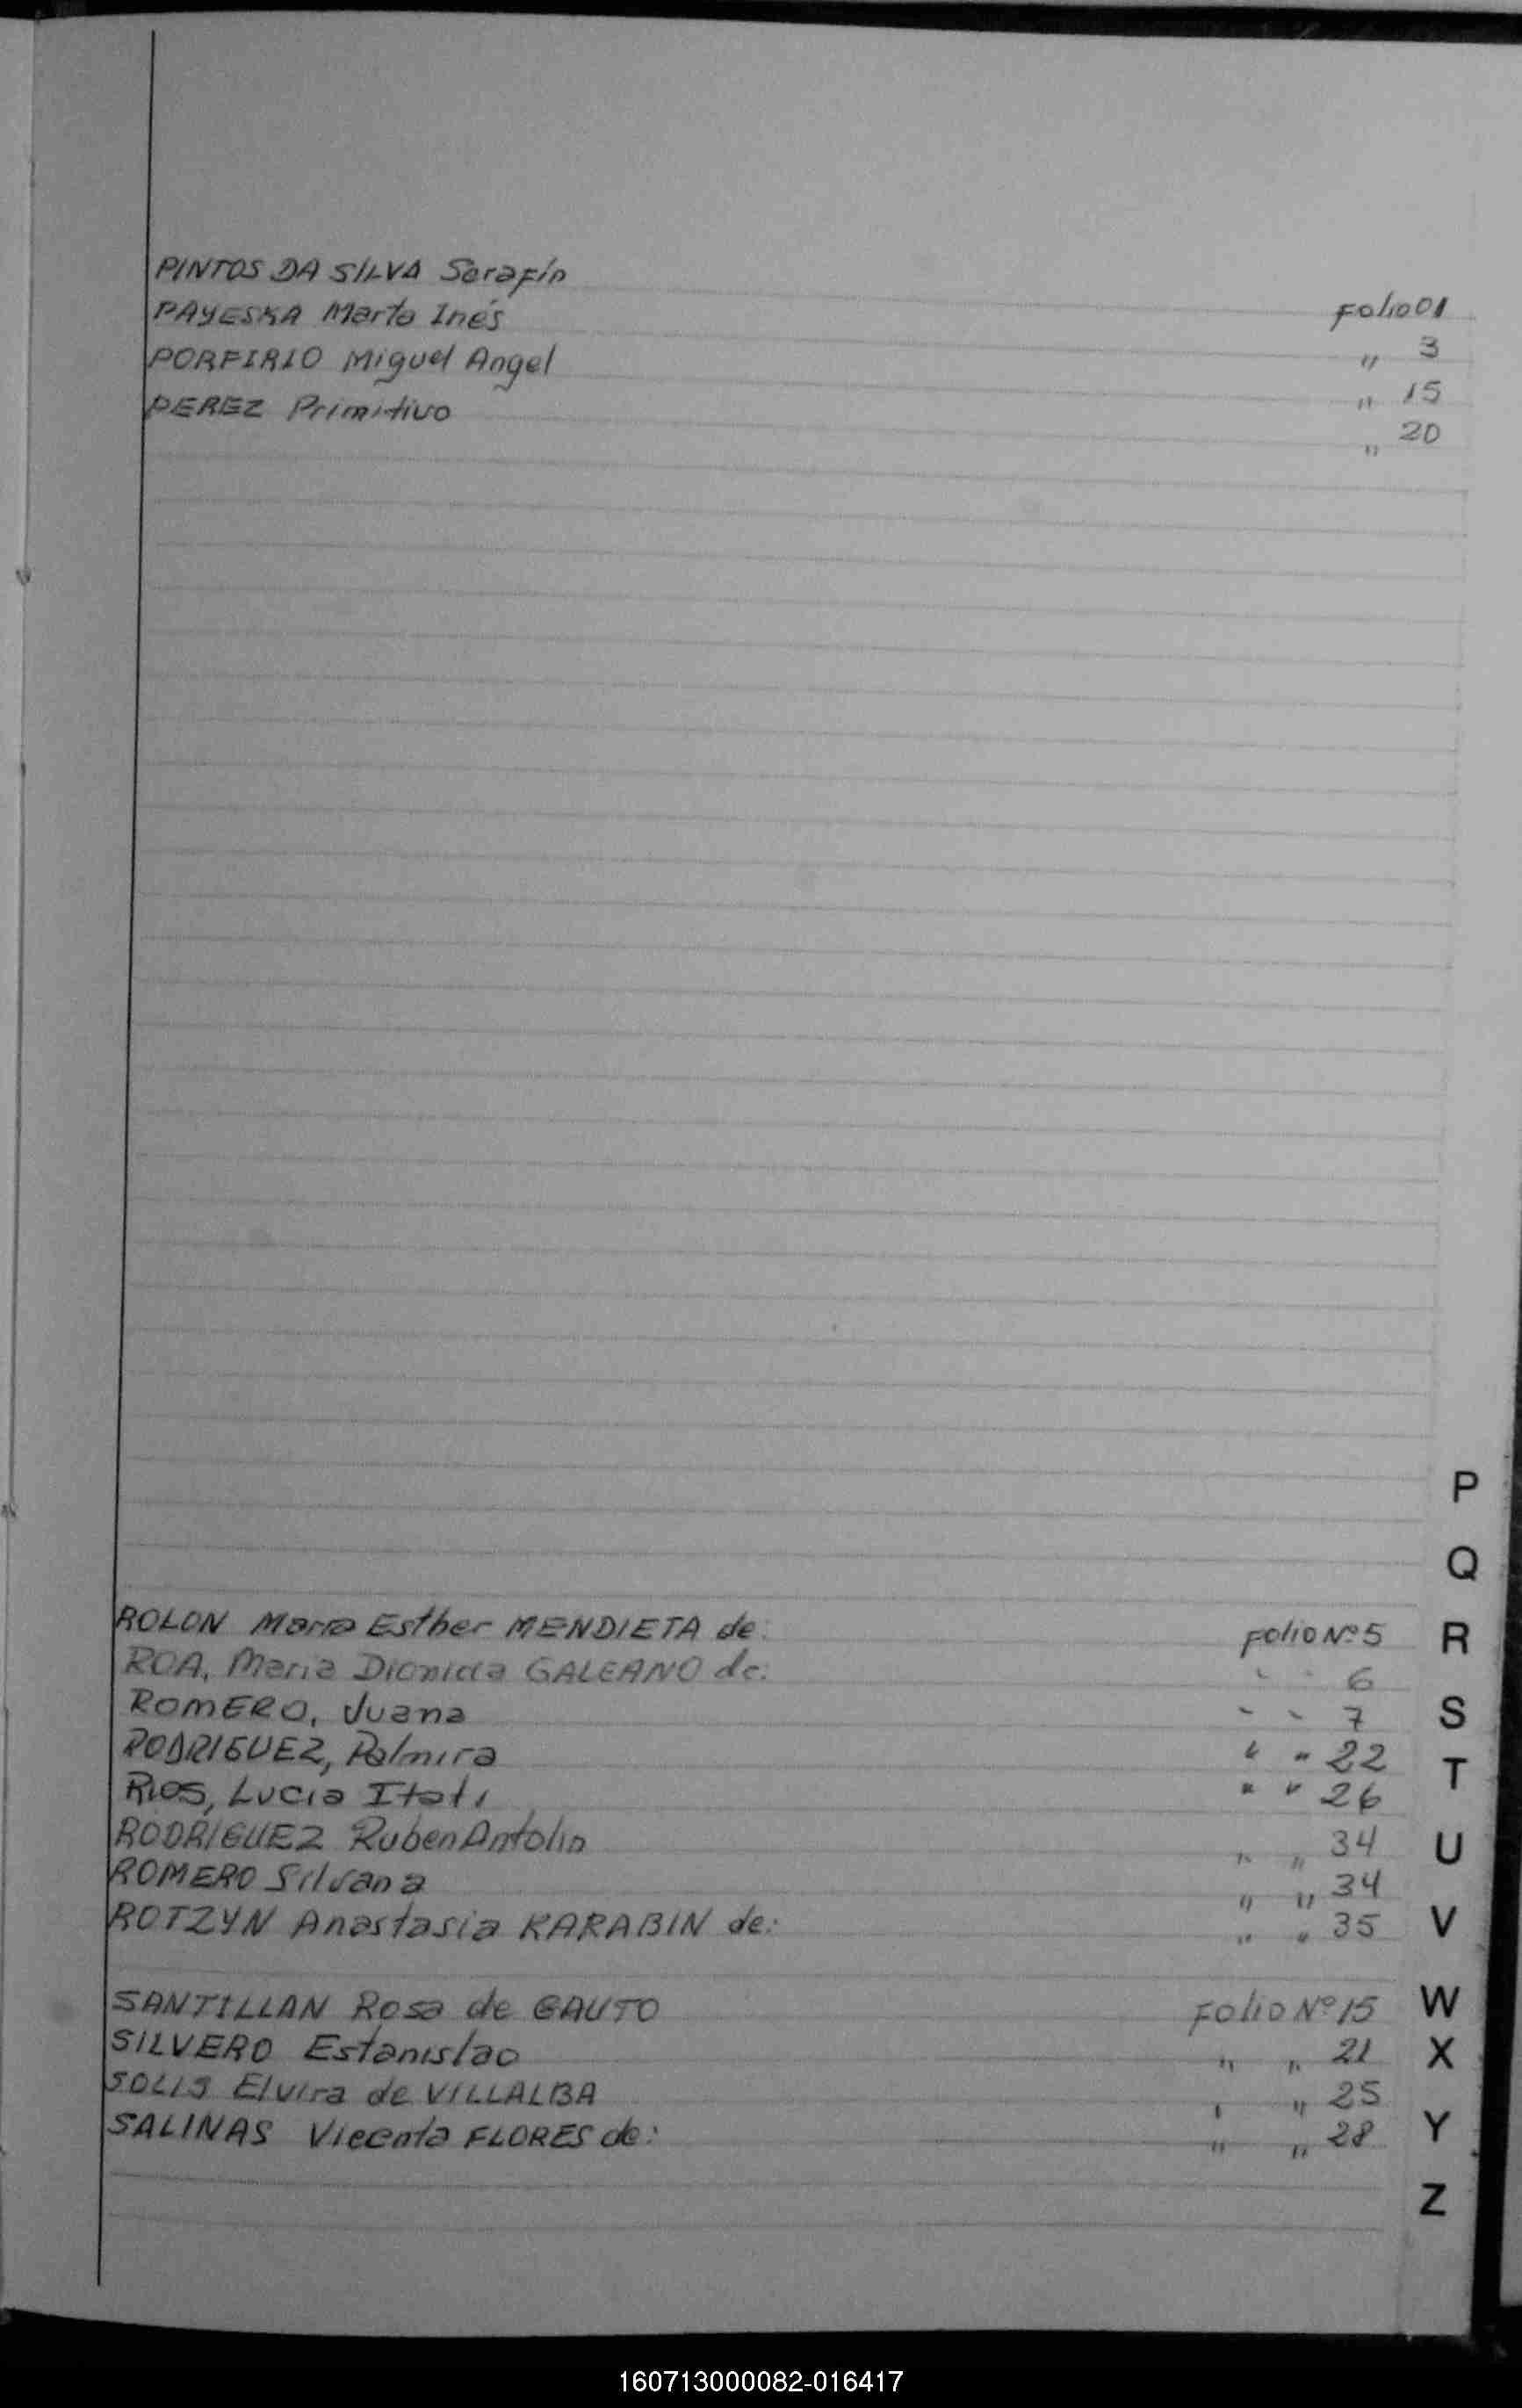 PINTOS DA SILVA Serafín Folio 01
PAYESKA Marta Inés " 3
PORFIRIO Miguel Angel " 15
PEREZ Primitivo " 20
P
Q
ROLON Maria Esther MENDIETA de: Folio Nº 5 R
ROA, Maria Dionicia GALEANO de: " " 6
ROMERO, Juana " " 7 S
RODRIGUEZ, Palmira " " 22
RIOS, Lucia Itati " " 26 T
RODRIGUEZ Ruben Antolin " " 34 U
ROMERO Silvana " " 34
ROTZYN Anastasia KARABIN de: " " 35 V
SANTILLAN Rosa de GAUTO Folio Nº 15 W
SILVERO Estanislao " " 21 X
SOLIS Elvira de VILLALBA " " 25
SALINAS Vicenta FLORES de: " " 28 Y
Z
160713000082-016417